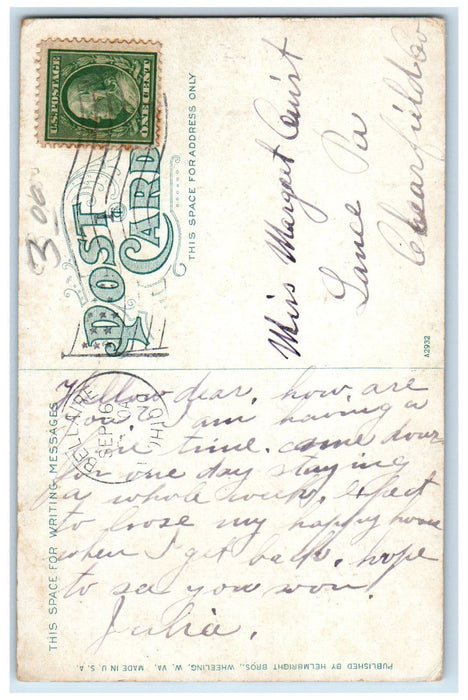 U.S. POSTAGE
ONE CENT
3-00
POST CARD
THIS SPACE FOR ADDRESS ONLY
Miss Margaret
Lance Pa
Clearfield Co
A2932
BELLAIRE
SEP 16
OHIO
THIS SPACE FOR WRITING MESSAGES
Hellow dear, how are
you. I am having a
fine time. came down
for one day staying
a whole week. expect
to loose my happy home
when I get back. hope
to see you soon.
Julia.
PUBLISHED BY HELMBRIGHT BROS., WHEELING, W. VA. MADE IN U. S. A.